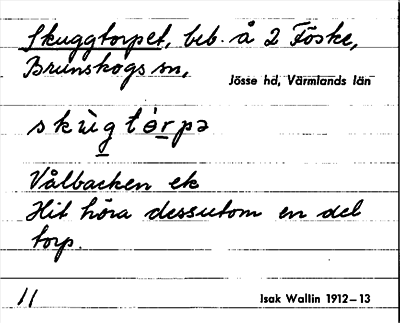 Skuggtorpet, beb. å 2 Föske,
Brunskogs sn,
Jösse hd, Värmlands län
skùgtòrpə
Vålbacken ek
Hit höra dessutom en del
torp.
11
Isak Wallin 1912–13